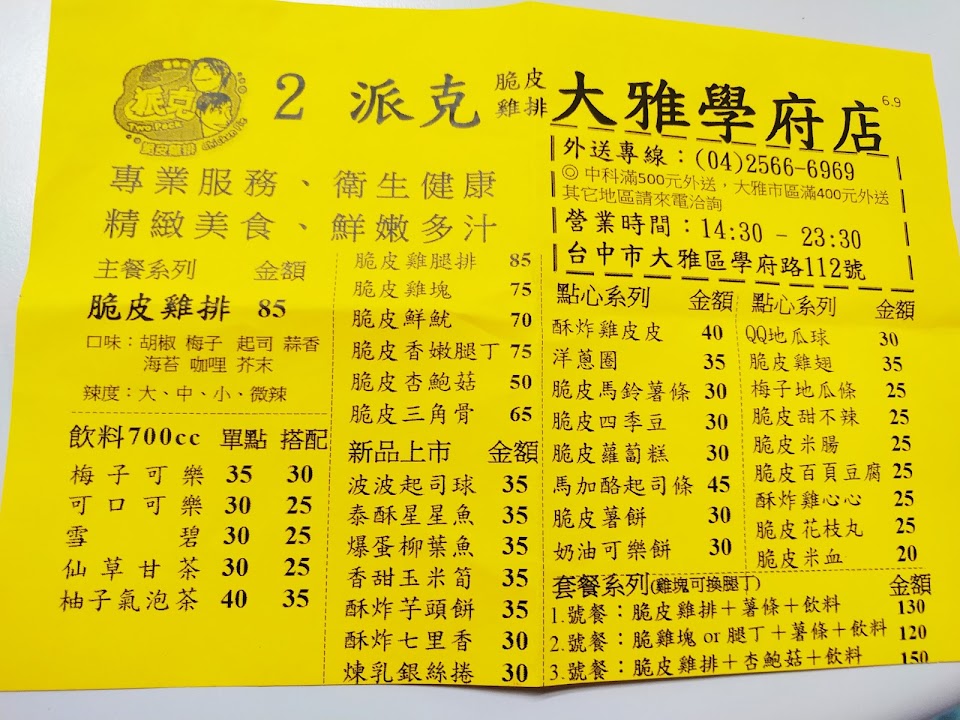 派克
Two Peck
脆皮雞排
2 派克 脆皮雞排 大雅學府店 6.9
專業服務、衛生健康
精緻美食、鮮嫩多汁
外送專線：(04)2566-6969
◎中科滿500元外送，大雅市區滿400元外送
其它地區請來電洽詢
營業時間：14:30 - 23:30
台中市大雅區學府路112號
主餐系列 金額
脆皮雞排 85
口味：胡椒 梅子 起司 蒜香
海苔 咖哩 芥末
辣度：大、中、小、微辣
飲料700cc 單點 搭配
梅子可樂 35 30
可口可樂 30 25
雪碧 30 25
仙草甘茶 30 25
柚子氣泡茶 40 35
脆皮雞腿排 85
脆皮雞塊 75
脆皮鮮魷 70
脆皮香嫩腿丁 75
脆皮杏鮑菇 50
脆皮三角骨 65
新品上市 金額
波波起司球 35
泰酥星星魚 35
爆蛋柳葉魚 35
香甜玉米筍 35
酥炸芋頭餅 35
酥炸七里香 30
煉乳銀絲捲 30
點心系列 金額
酥炸雞皮皮 40
洋蔥圈 35
脆皮馬鈴薯條 30
脆皮四季豆 30
脆皮蘿蔔糕 30
馬加酪起司條 45
脆皮薯餅 30
奶油可樂餅 30
點心系列 金額
QQ地瓜球 30
脆皮雞翅 35
梅子地瓜條 25
脆皮甜不辣 25
脆皮米腸 25
脆皮百頁豆腐 25
酥炸雞心心 25
脆皮花枝丸 25
脆皮米血 20
套餐系列(雞塊可換腿丁) 金額
1.號餐：脆皮雞排＋薯條＋飲料 130
2.號餐：脆雞塊 or 腿丁＋薯條＋飲料 120
3.號餐：脆皮雞排＋杏鮑菇＋飲料 150